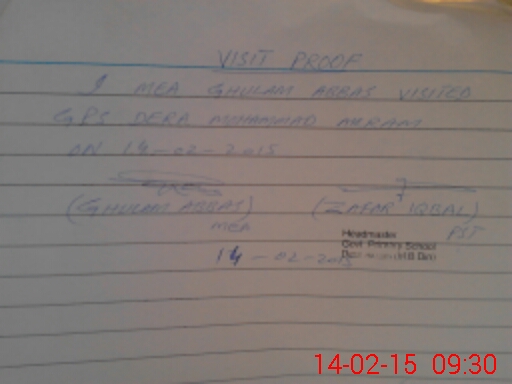 VISIT PROOF
I MEA GHULAM ABBAS VISITED
GPS DERA MUHAMMAD AKRAM
ON 14-02-2015
(GHULAM ABBAS) (ZAFAR IQBAL)
MEA PST
Headmaster
Govt Primary School
14-02-2015
14-02-15 09:30